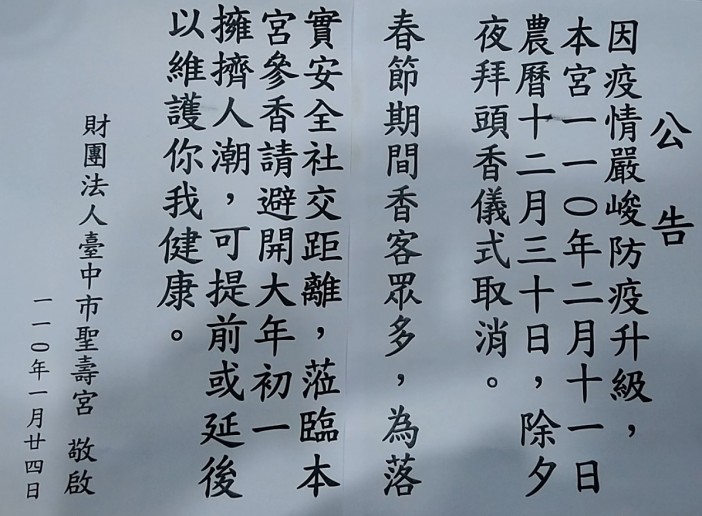 公告
因疫情嚴峻防疫升級，
本宮一一〇年二月十一日
農曆十二月三十日，除夕
夜拜頭香儀式取消。
春節期間香客眾多，為落
實安全社交距離，蒞臨本
宮參香請避開大年初一
擁擠人潮，可提前或延後
以維護你我健康。
財團法人臺中市聖壽宮 敬啟
一一〇年一月廿四日